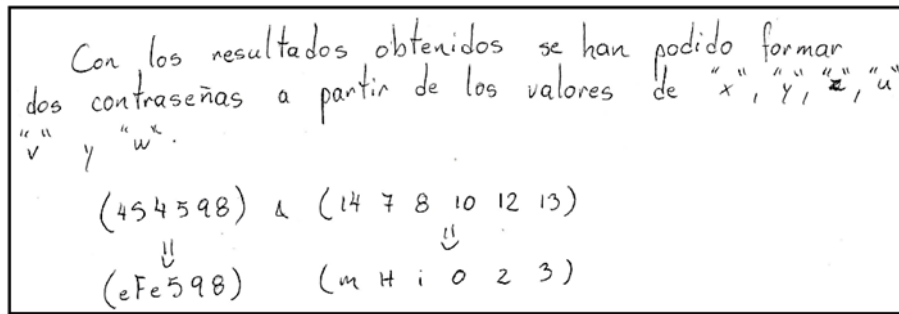 Con los resultados obtenidos se han podido formar
dos contraseñas a partir de los valores de "x", "y", "z", "u"
"v" y "w".
(454598) & (14 7 8 10 12 13)
⇓ ⇓
(eFe598) (m H i 0 2 3)